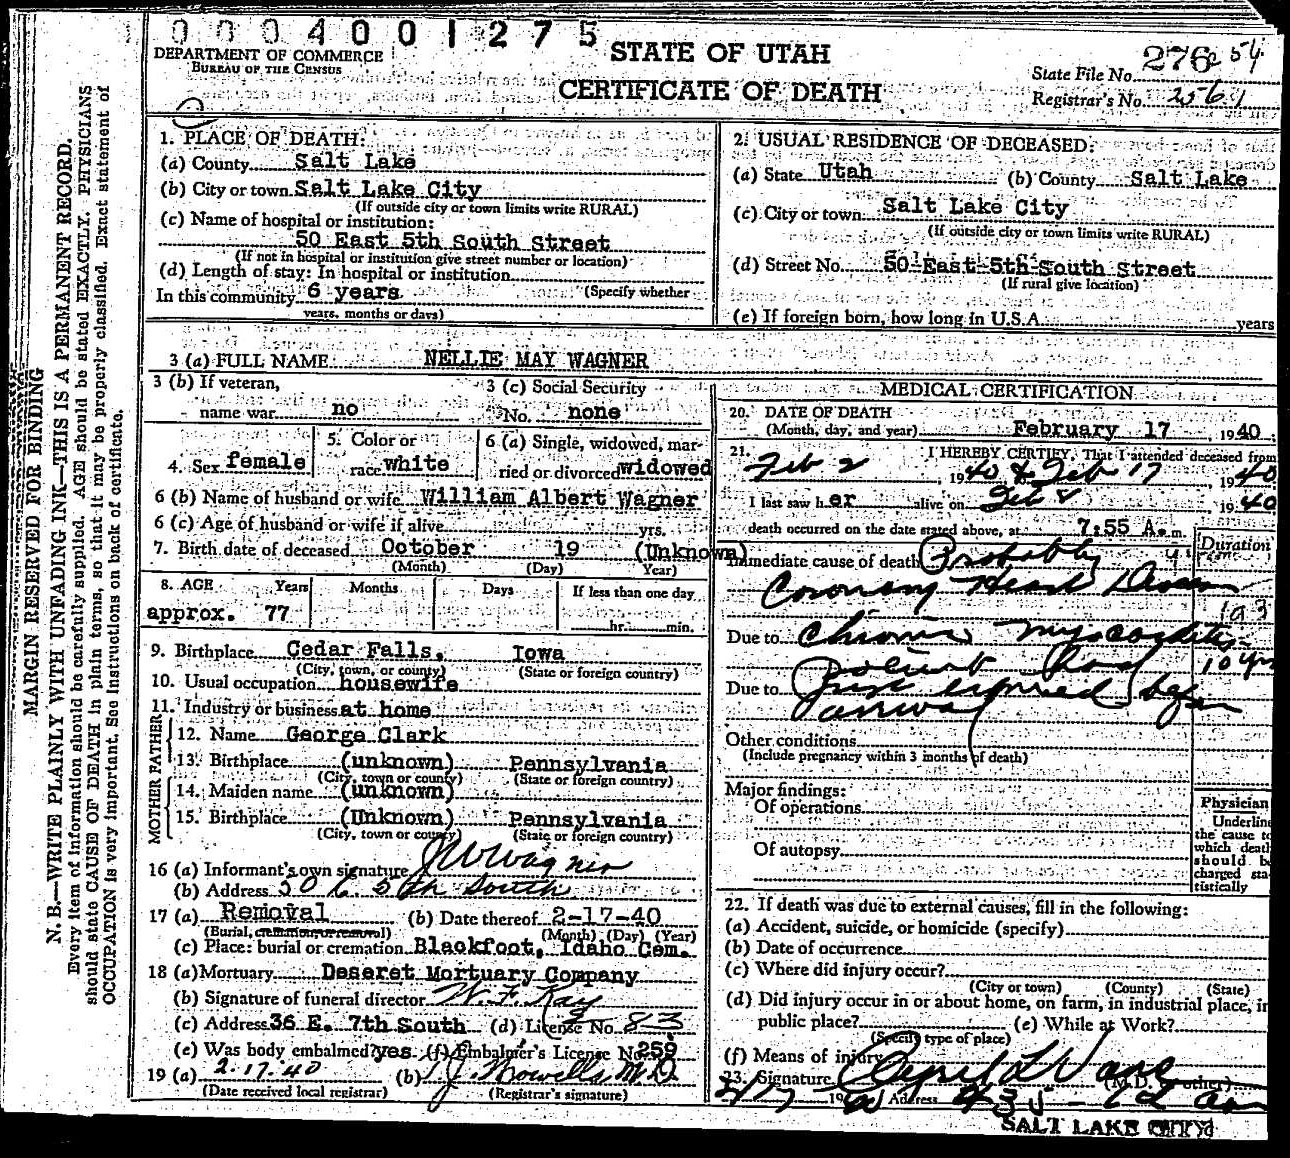 0004001275
DEPARTMENT OF COMMERCE
BUREAU OF THE CENSUS
STATE OF UTAH
CERTIFICATE OF DEATH
State File No. 276 254
Registrar's No. 2561
MARGIN RESERVED FOR BINDING
N. B.—WRITE PLAINLY WITH UNFADING INK—THIS IS A PERMANENT RECORD.
Every item of information should be carefully supplied. AGE should be stated EXACTLY. PHYSICIANS
should state CAUSE OF DEATH in plain terms, so that it may be properly classified. Exact statement of
OCCUPATION is very important. See Instructions on back of certificate.
1. PLACE OF DEATH:
(a) County Salt Lake
(b) City or town Salt Lake City
(If outside city or town limits write RURAL)
(c) Name of hospital or institution:
50 East 5th South Street
(If not in hospital or institution give street number or location)
(d) Length of stay: In hospital or institution
(Specify whether
In this community 6 years
years, months or days)
2. USUAL RESIDENCE OF DECEASED:
(a) State Utah (b) County Salt Lake
(c) City or town Salt Lake City
(If outside city or town limits write RURAL)
(d) Street No. 50 East 5th South Street
(If rural give location)
(e) If foreign born, how long in U.S.A. years
3 (a) FULL NAME NELLIE MAY WAGNER
3 (b) If veteran,
name war no
3 (c) Social Security
No. none
4. Sex female
5. Color or
race white
6 (a) Single, widowed, mar-
ried or divorced widowed
6 (b) Name of husband or wife William Albert Wagner
6 (c) Age of husband or wife if alive yrs.
7. Birth date of deceased October 19 (Unknown)
(Month) (Day) Year)
8. AGE Years Months Days If less than one day
approx. 77 hr. min.
9. Birthplace Cedar Falls, Iowa
(City, town, or county) (State or foreign country)
10. Usual occupation housewife
11. Industry or business at home
FATHER
12. Name George Clark
13. Birthplace (unknown) Pennsylvania
(City, town or county) (State or foreign country)
MOTHER
14. Maiden name (unknown)
15. Birthplace (Unknown) Pennsylvania
(City, town or county) (State or foreign country)
16 (a) Informant's own signature J W Wagner
(b) Address 50 E. 5th South
17 (a) Removal (b) Date thereof 2-17-40
(Burial, cremation or removal) (Month) (Day) (Year)
(c) Place: burial or cremation Blackfoot, Idaho Cem.
18 (a) Mortuary Deseret Mortuary Company
(b) Signature of funeral director W. F. Kay
(c) Address 36 E. 7th South (d) License No. 83
(e) Was body embalmed? yes (f) Embalmer's License No. 259
19 (a) 2-17-40 (b) M.D.
(Date received local registrar) (Registrar's signature)
MEDICAL CERTIFICATION
20. DATE OF DEATH
(Month, day, and year) February 17, 1940
21. I HEREBY CERTIFY, That I attended deceased from
Feb 2, 1940 to Feb 17, 1940
I last saw her alive on Feb 8 1940
death occurred on the date stated above, at 7:55 A.m.
Duration
Immediate cause of death Probably
Coronary Heart Disease
Due to Chronic myocarditis
10 yrs
Due to
Other conditions
(Include pregnancy within 3 months of death)
Major findings:
Of operations
Of autopsy
Physician
Underline
the cause to
which death
should be
charged sta-
tistically
22. If death was due to external causes, fill in the following:
(a) Accident, suicide, or homicide (specify)
(b) Date of occurrence
(c) Where did injury occur?
(City or town) (County) (State)
(d) Did injury occur in or about home, on farm, in industrial place, in
public place? (e) While at Work?
(Specify type of place)
(f) Means of injury
23. Signature (M.D. or other)
2/17 1940 Address
SALT LAKE CITY